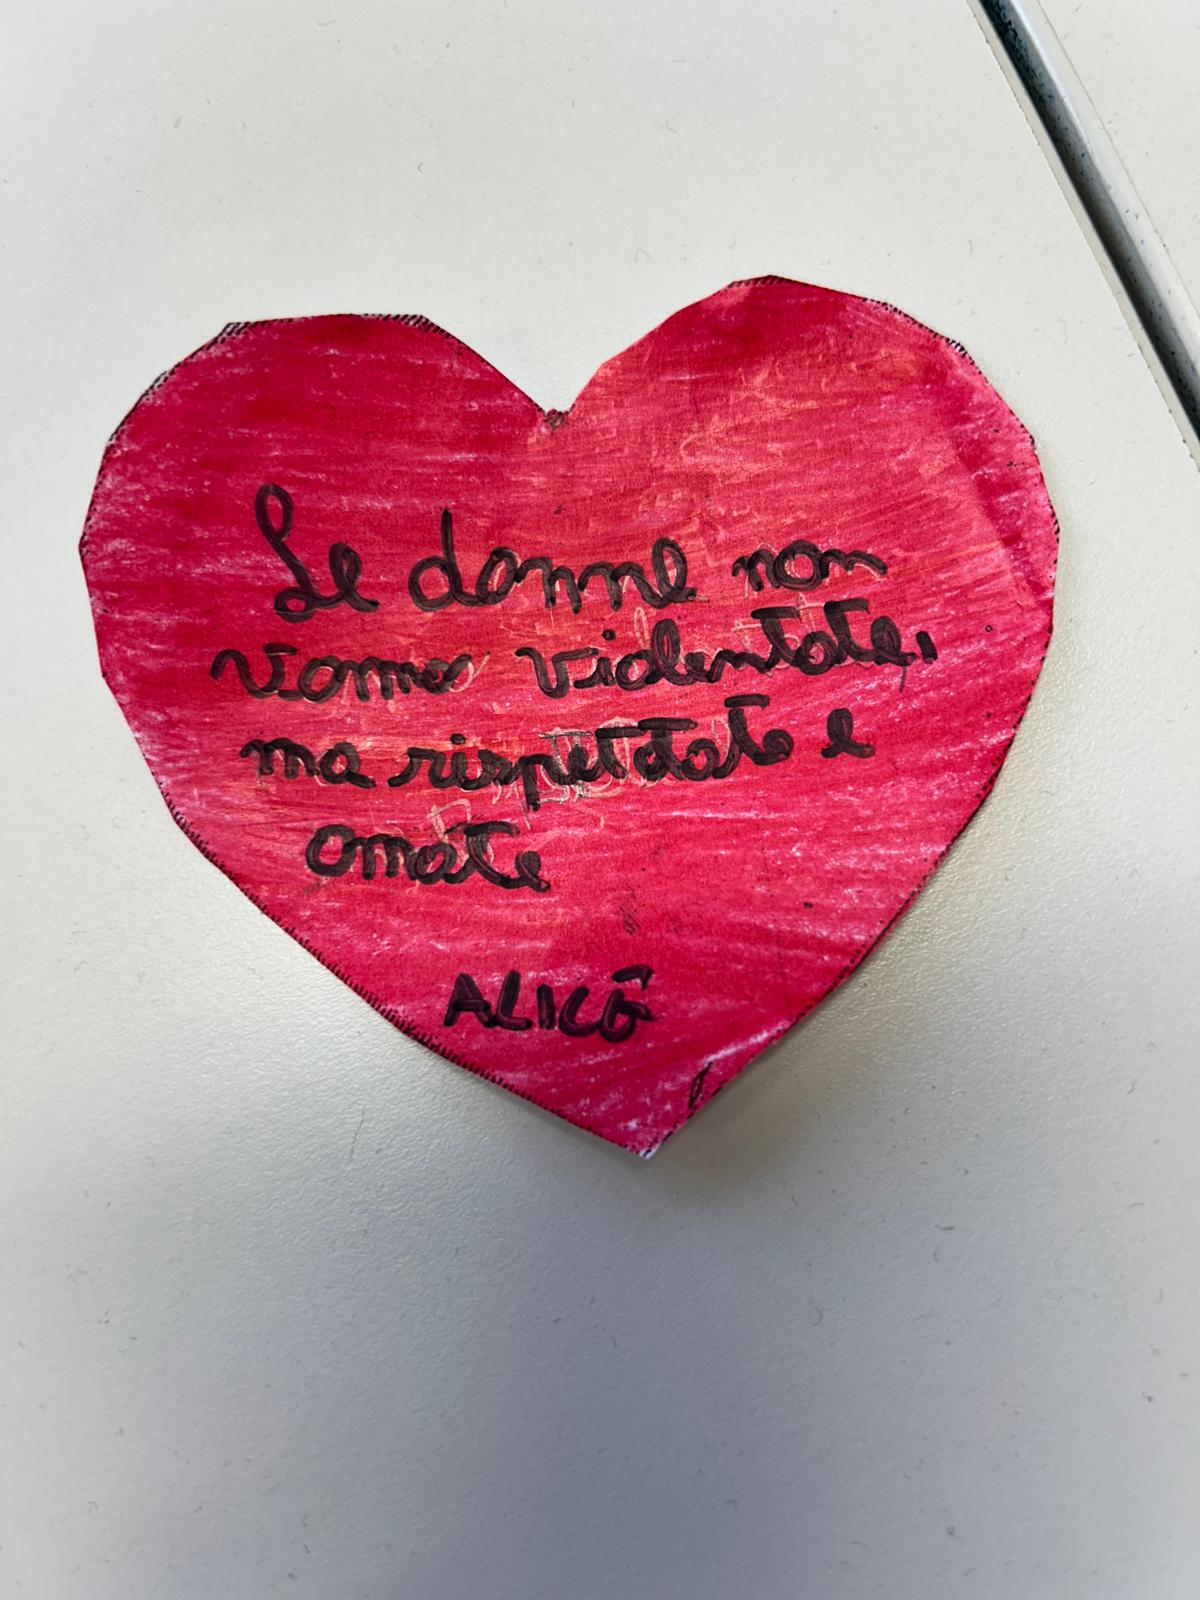 Le donne non
vanno violentate,
ma rispettate e
amate
ALICE